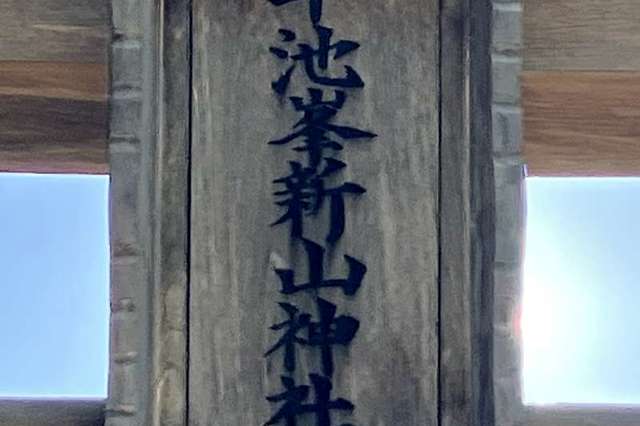 池峯新山神社